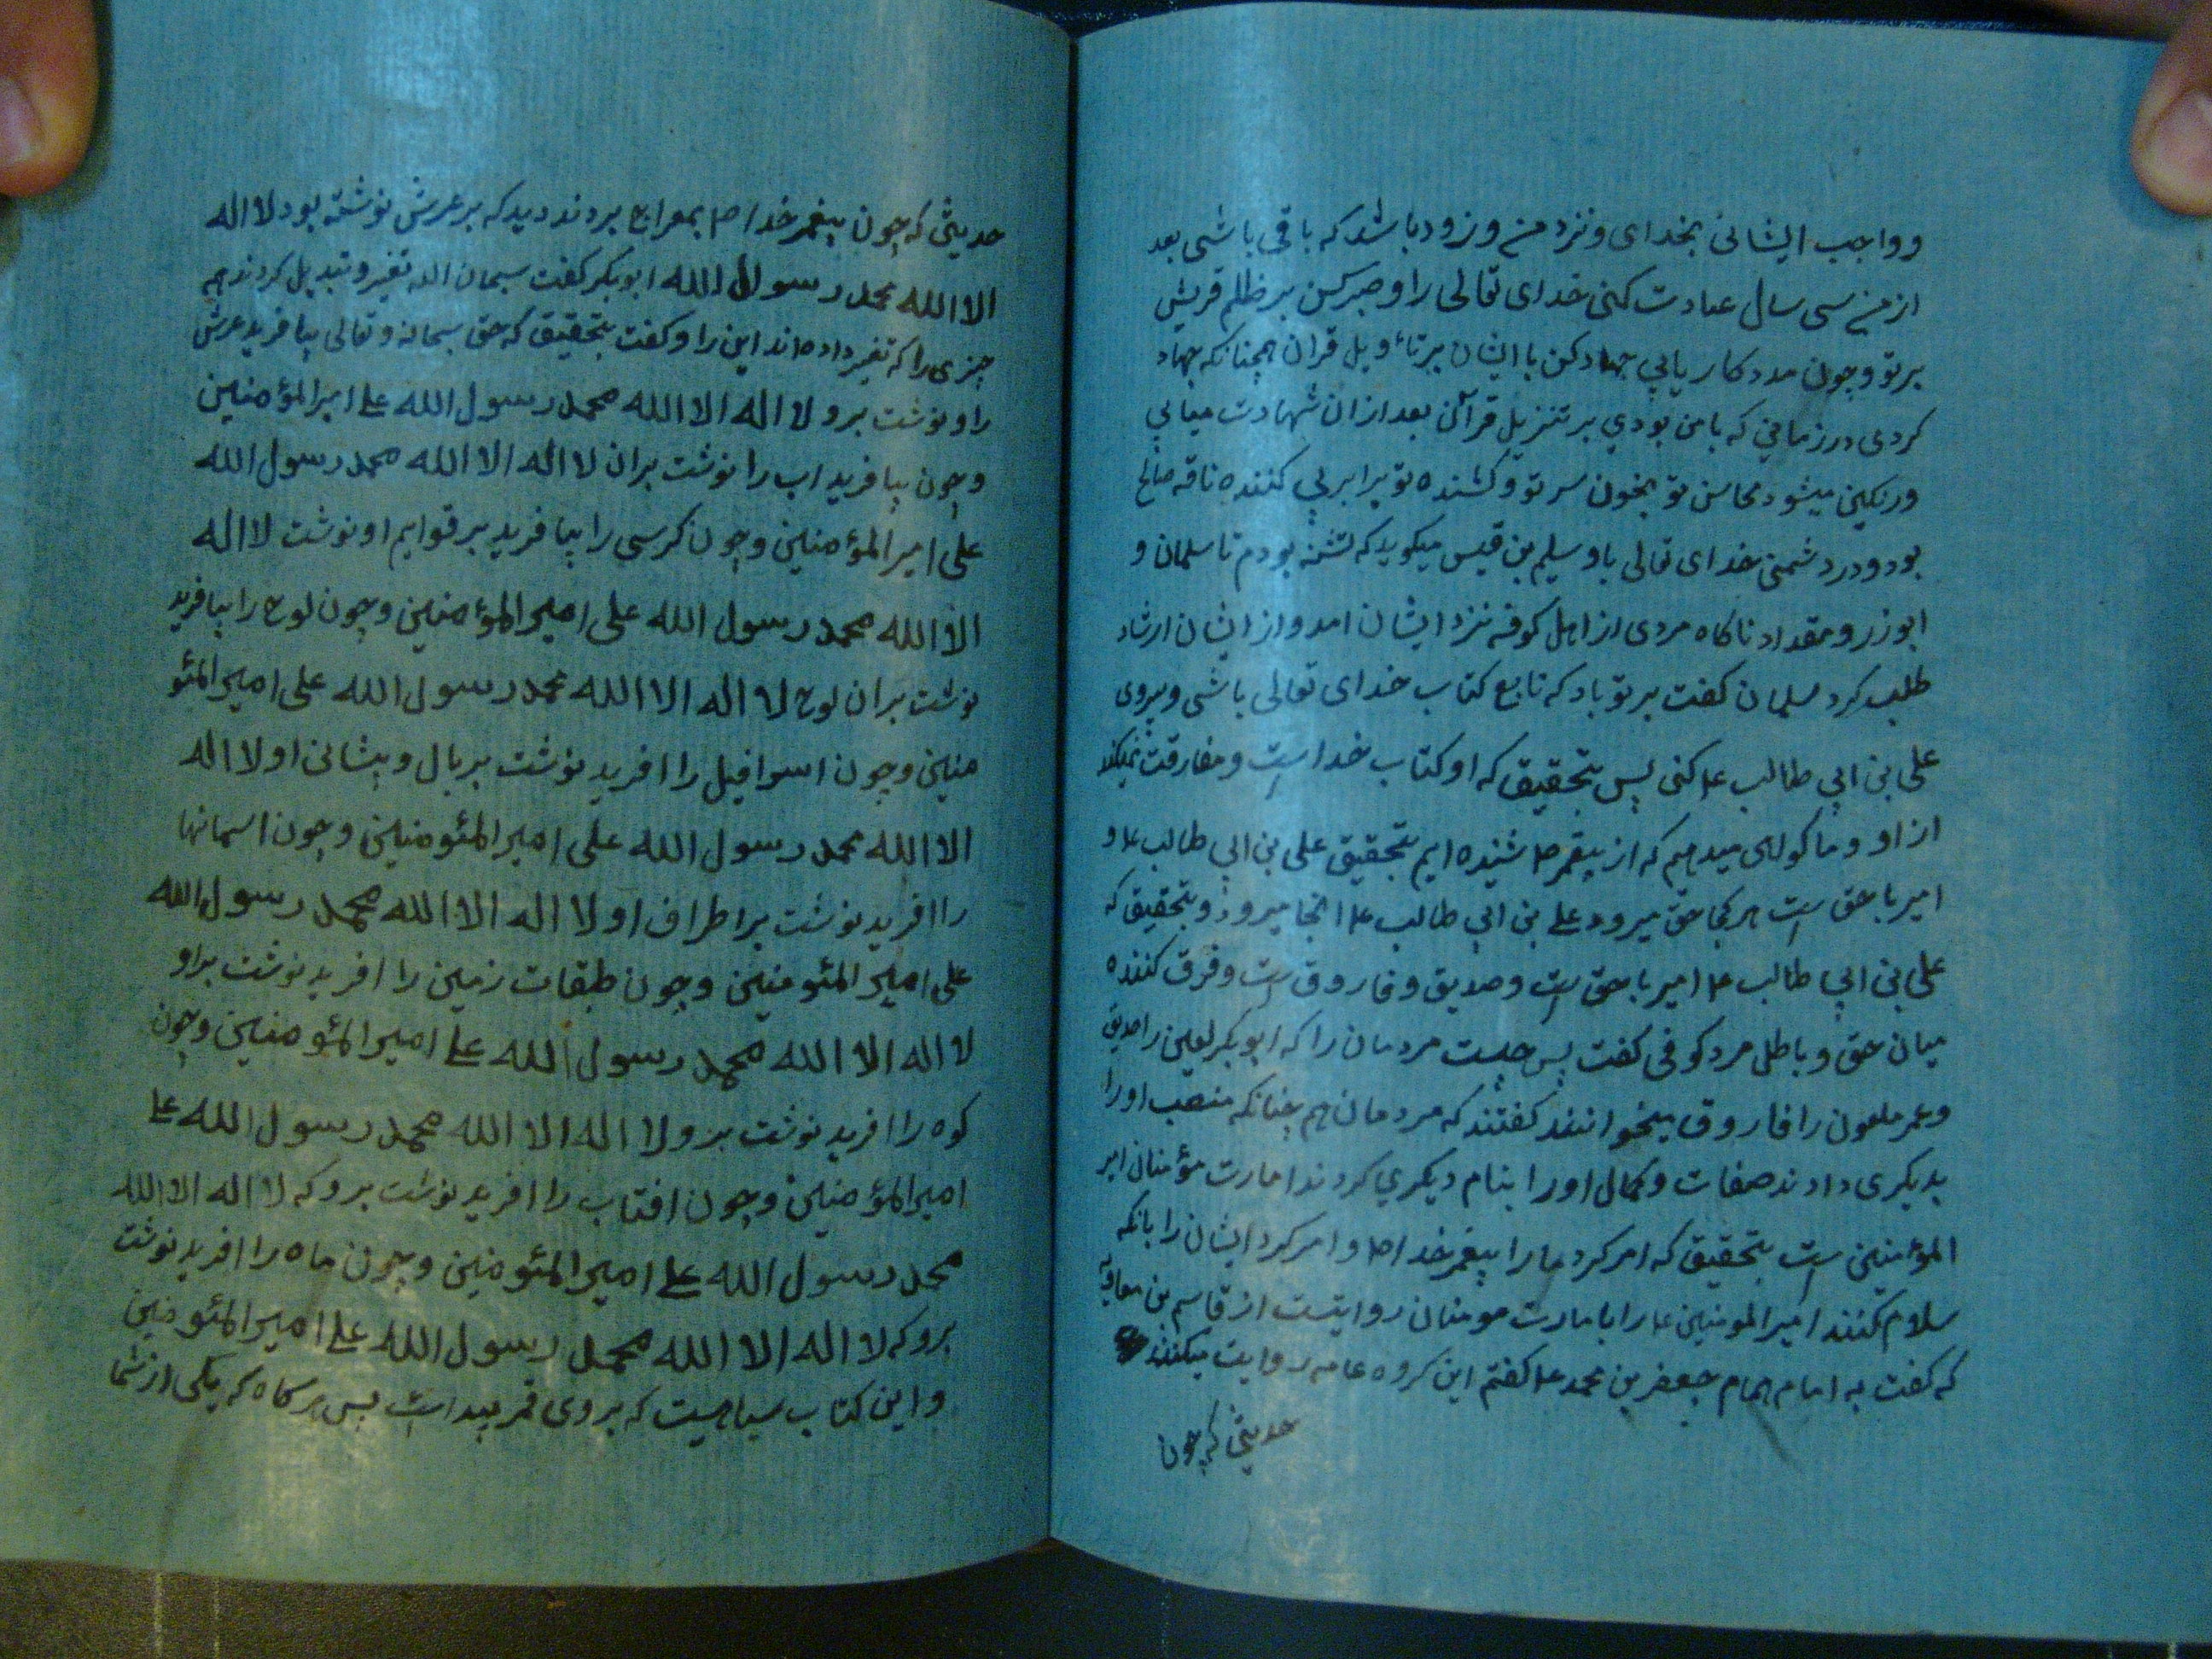 و واجب ایشانی بخدای و نزد من و زود باشد که باقی باشی بعد
از من سی سال عبادت کنی خدای تعالی را و صبر کن بر ظلم قریش
بر تو و چون مددکار یابی جهاد کن با ایشان بر تاٴویل قران همچنانکه جهاد
کردی در زمانی که با من بودی بر تنزیل قرآن بعد از ان شهادت میابی
و رنکین میشود محاسن تو بخون سر تو و کشنده تو برابر پی کننده ناقه صالح
بود و در دشمنی خدای تعالی با و سلیم بن قیس میکوید که نشسته بودم با سلمان و
ابوذر و مقداد ناکاه مردی از اهل کوفه نزد ایشان امد و از ایشان ارشاد
طلب کرد سلمان کفت بر تو باد که تابع کتاب خدای تعالی باشی و پیروی
علی بن ابی طالب ع کنی پس بتحقیق که او کتاب خداست و مفارقت نمیکند
از او و ما کواهی میدهیم که از پیغمبر ص شنیده ایم بتحقیق علی بن ابی طالب ع و
امیر با حق است هر کجا حق میرود علی بن ابی طالب ع انجا میرود و بتحقیق که
علی بن ابی طالب ع امیر با حق است و صدیق و فاروق است و فرق کننده
میان حق و باطل مرد کوفی کفت پس چیست مردمان را که ابوبکر لعین را صدیق
و عمر ملعون را فاروق میخوانند کفتند که مردمان هم چنانکه منصب او را
بدیکری دادند صفات و کمال او را بنام دیکری کردند امارت مؤمنان امیر
المؤمنین است بتحقیق که امر کرد ما را پیغمبر خدا ص و امر کرد ایشان را بانکه
سلام کنند امیر المومنین ع را بامارت مومنان روایتست از قاسم بن معاویه
که کفت به امام همام جعفر بن محمد ع کفتم این کروه عامه روایت میکنند
حدیثی که چون
حدیثی که چون پیغمبر خدا ص بمعراج بردند دید که بر عرش نوشته بود لا اله
الا الله محمد رسول الله ابوبکر کفت سبحان الله تغیر و تبدیل کردند هر
چیزی را که تغیر داده اند این را و کفت بتحقیق که حق سبحانه و تعالی بیافرید عرش
را و نوشت برو لا اله الا الله محمد رسول الله علی امیر المؤمنین
و چون بیافرید اب را نوشت بران لا اله الا الله محمد رسول الله
علی امیر المؤمنین و چون کرسی را بیافرید بر قوایم او نوشت لا اله
الا الله محمد رسول الله علی امیر المؤمنین و چون لوح را بیافرید
نوشت بران لوح لا اله الا الله محمد رسول الله علی امیر المئو
منین و چون اسرافیل را افرید نوشت بر بال و پیشانی او لا اله
الا الله محمد رسول الله علی امیر المئومنین و چون اسمانها
را افرید نوشت بر اطراف او لا اله الا الله محمد رسول الله
علی امیر المئومنین و چون طبقات زمین را افرید نوشت براو
لا اله الا الله محمد رسول الله علی امیر المئومنین و چون
کوه را افرید نوشت برو لا اله الا الله محمد رسول الله علی
امیر المؤمنین و چون افتاب را افرید نوشت برو که لا اله الا الله
محمد رسول الله علی امیر المئومنین و چون ماه را افرید نوشت
برو که لا اله الا الله محمد رسول الله علی امیر المئومنین
و این کتاب سیاهیست که بروی قمر پیداست پس هرکاه که یکی از شما